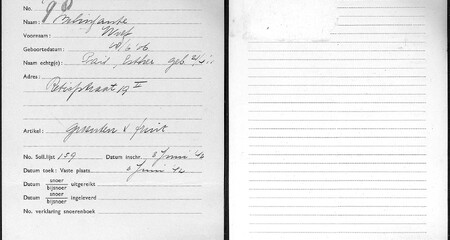 No. 98
Naam: Belinfante
Voornaam: Wolf
Geboortedatum:
Naam echtg(e): Esther geb.
Adres:
Retiefstraat 19 II
Artikel: groenten & fruit
No. Soll.lijst 159 Datum inschr. 5 Juni 42
Datum toek: Vaste plaats 6 Juni 42
Datum snoer / bijsnoer uitgereikt
Datum snoer / bijsnoer ingeleverd
No. verklaring snoerenboek